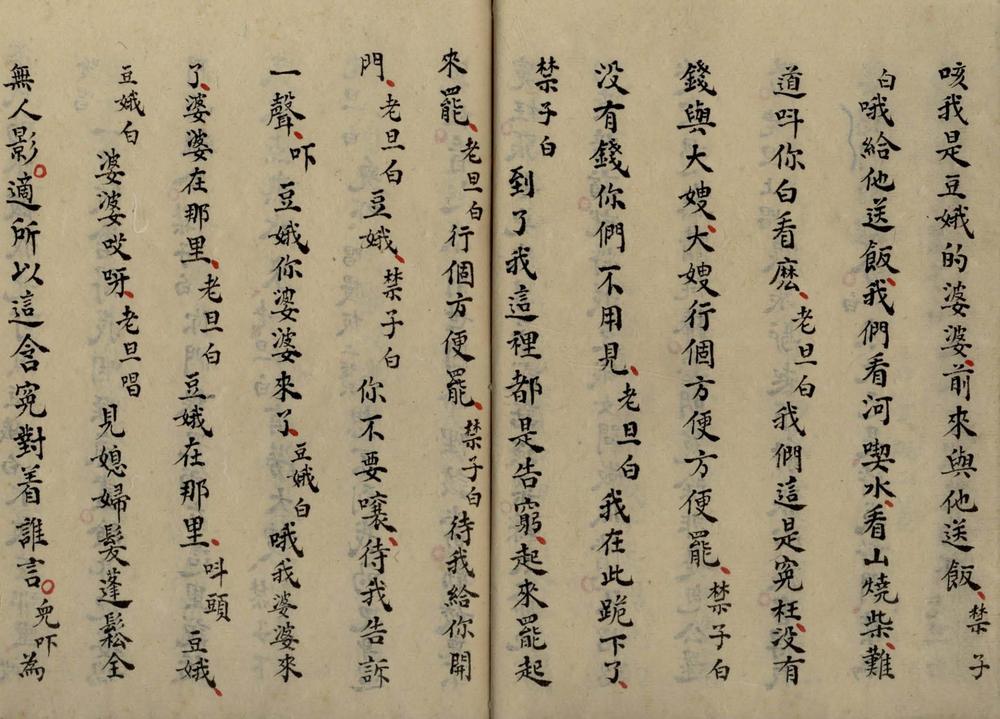 咳我是豆娥的婆婆、前來與他送飯、禁子
白哦給他送飯、我們看河喫水、看山燒柴、難
道呌你白看麽、老旦白我們這是寃枉、没有
錢與大嫂、大嫂行個方便方便罷、禁子白
没有錢你們不用見、老旦白我在此跪下了、
禁子白到了我這裡都是告窮、起來罷起
來罷、老旦白行個方便罷、禁子白待我給你開
門、老旦白豆娥、禁子白你不要嚷、待我告訴
一聲、吓豆娥你婆婆來了、豆娥白哦我婆婆來
了、婆婆在那里、老旦白豆娥在那里、呌頭豆娥、
豆娥白婆婆哎呀、老旦唱見媳婦髮蓬鬆全
無人影。適所以這含寃對着誰言。兒吓為